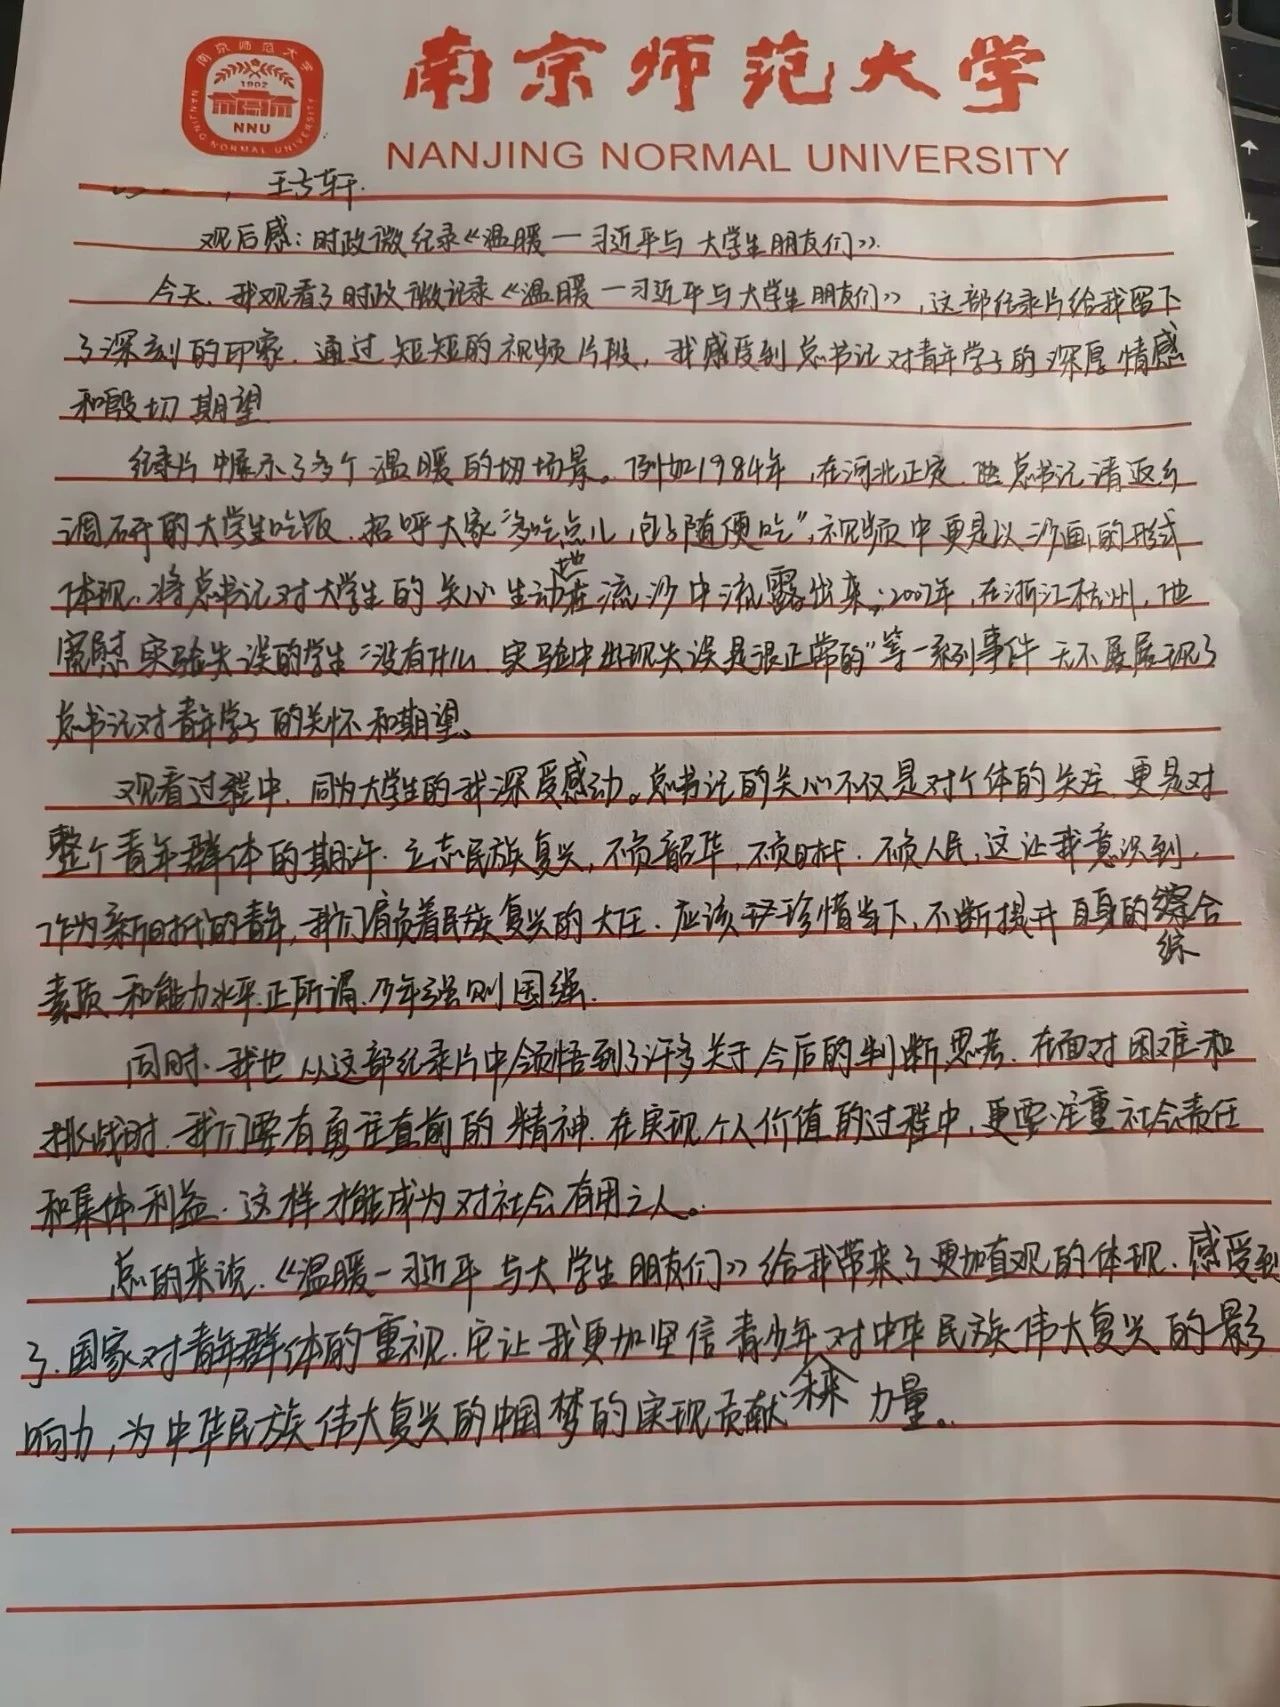 南京师范大学
1902
NNU
NANJING NORMAL UNIVERSITY
南京师范大学
NANJING NORMAL UNIVERSITY
轩.
观后感：时政微纪录《温暖一习近平与大学生朋友们》.
今天，我观看了时政微记录《温暖一习近平与大学生朋友们》，这部纪录片给我留下
了深刻的印象. 通过短短的视频片段，我感受到总书记对青年学子的深厚情感
和殷切期望
纪录片中展示了多个温暖的切场景。例如1984年，在河北正定，总书记请返乡
调研的大学生吃饭，招呼大家“多吃点儿，包子随便吃”，视频中更是以沙画的形式
体现，将总书记对大学生的关心生动地流沙中流露出来；2007年，在浙江杭州，他
宽慰实验失误的学生“没有什么，实验中出现失误是很正常的”等一系列事件无不展现了
总书记对青年学子的关怀和期望。
观看过程中，同为大学生的我深受感动。总书记的关心不仅是对个体的关注，更是对
整个青年群体的期许. 立志民族复兴，不负韶华，不负时代，不负人民，这让我意识到，
作为新时代的青年，我们肩负着民族复兴的大任，应该珍惜当下，不断提升自身的综合
素质和能力水平. 正所谓，少年强则国强.
同时，我也从这部纪录片中领悟到了许多关于今后的判断思考. 在面对困难和
挑战时，我们要有勇往直前的精神. 在实现个人价值的过程中，更要注重社会责任
和集体利益. 这样才能成为对社会有用之人。
总的来说，《温暖一习近平与大学生朋友们》给我带来了更加直观的体现，感受到
了，国家对青年群体的重视. 它让我更加坚信青少年对中华民族伟大复兴的影
响力，为中华民族伟大复兴的中国梦的实现贡献未来力量。